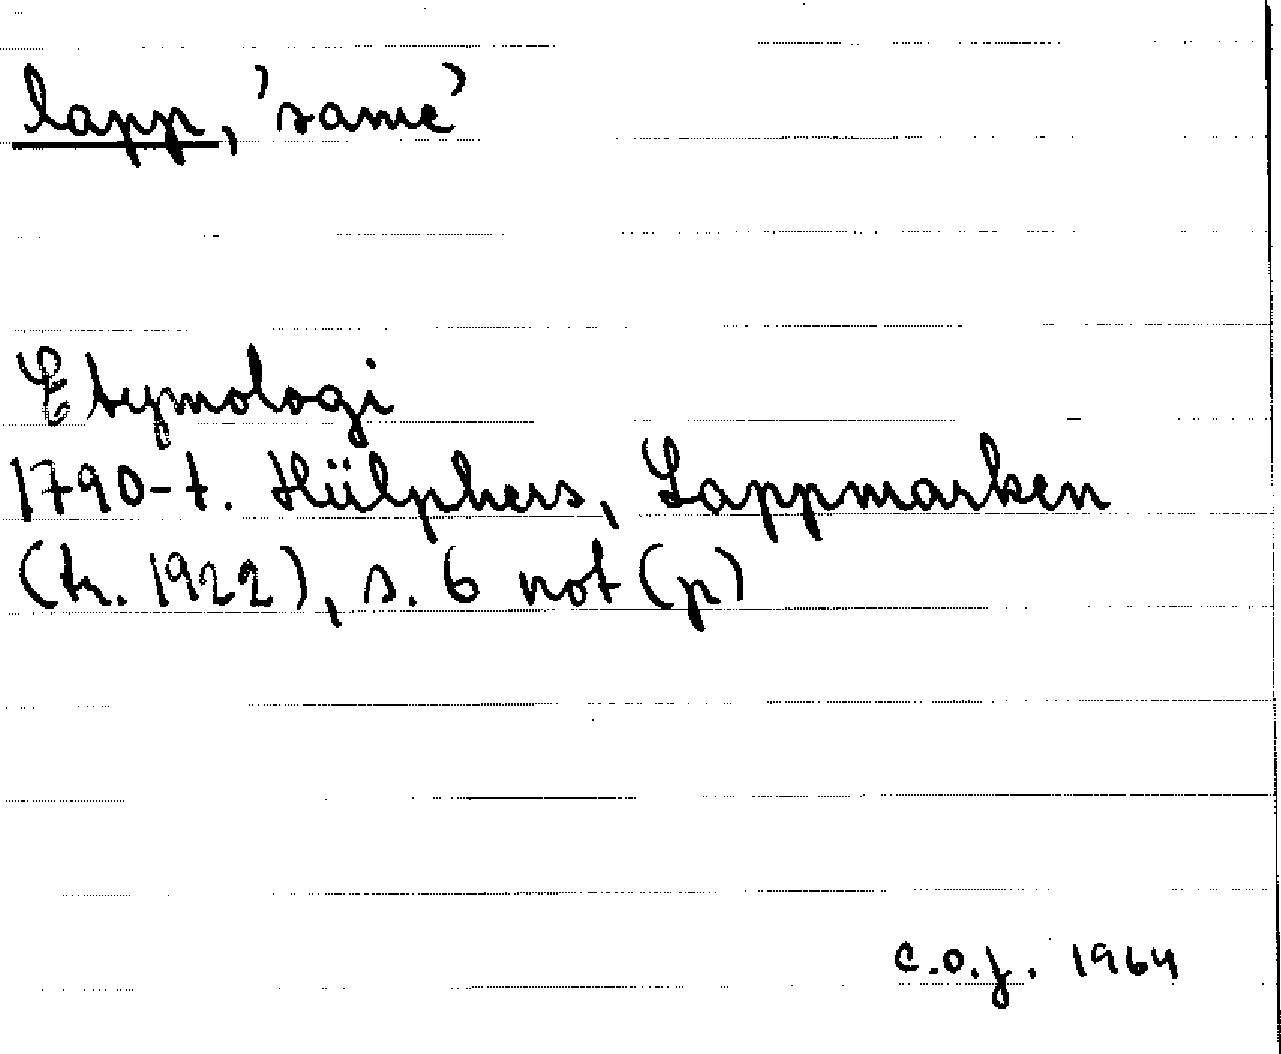 lapp, 'same'
Etymologi
1790-t. Hülphers, Lappmarken
(tr. 1922), s. 6 not (p)
C.O.J. 1964